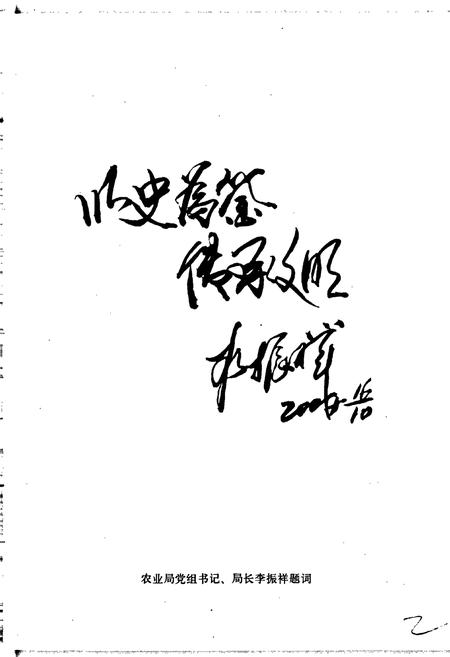 以史为鉴
传承文明
李振祥
农业局党组书记、局长李振祥题词
2